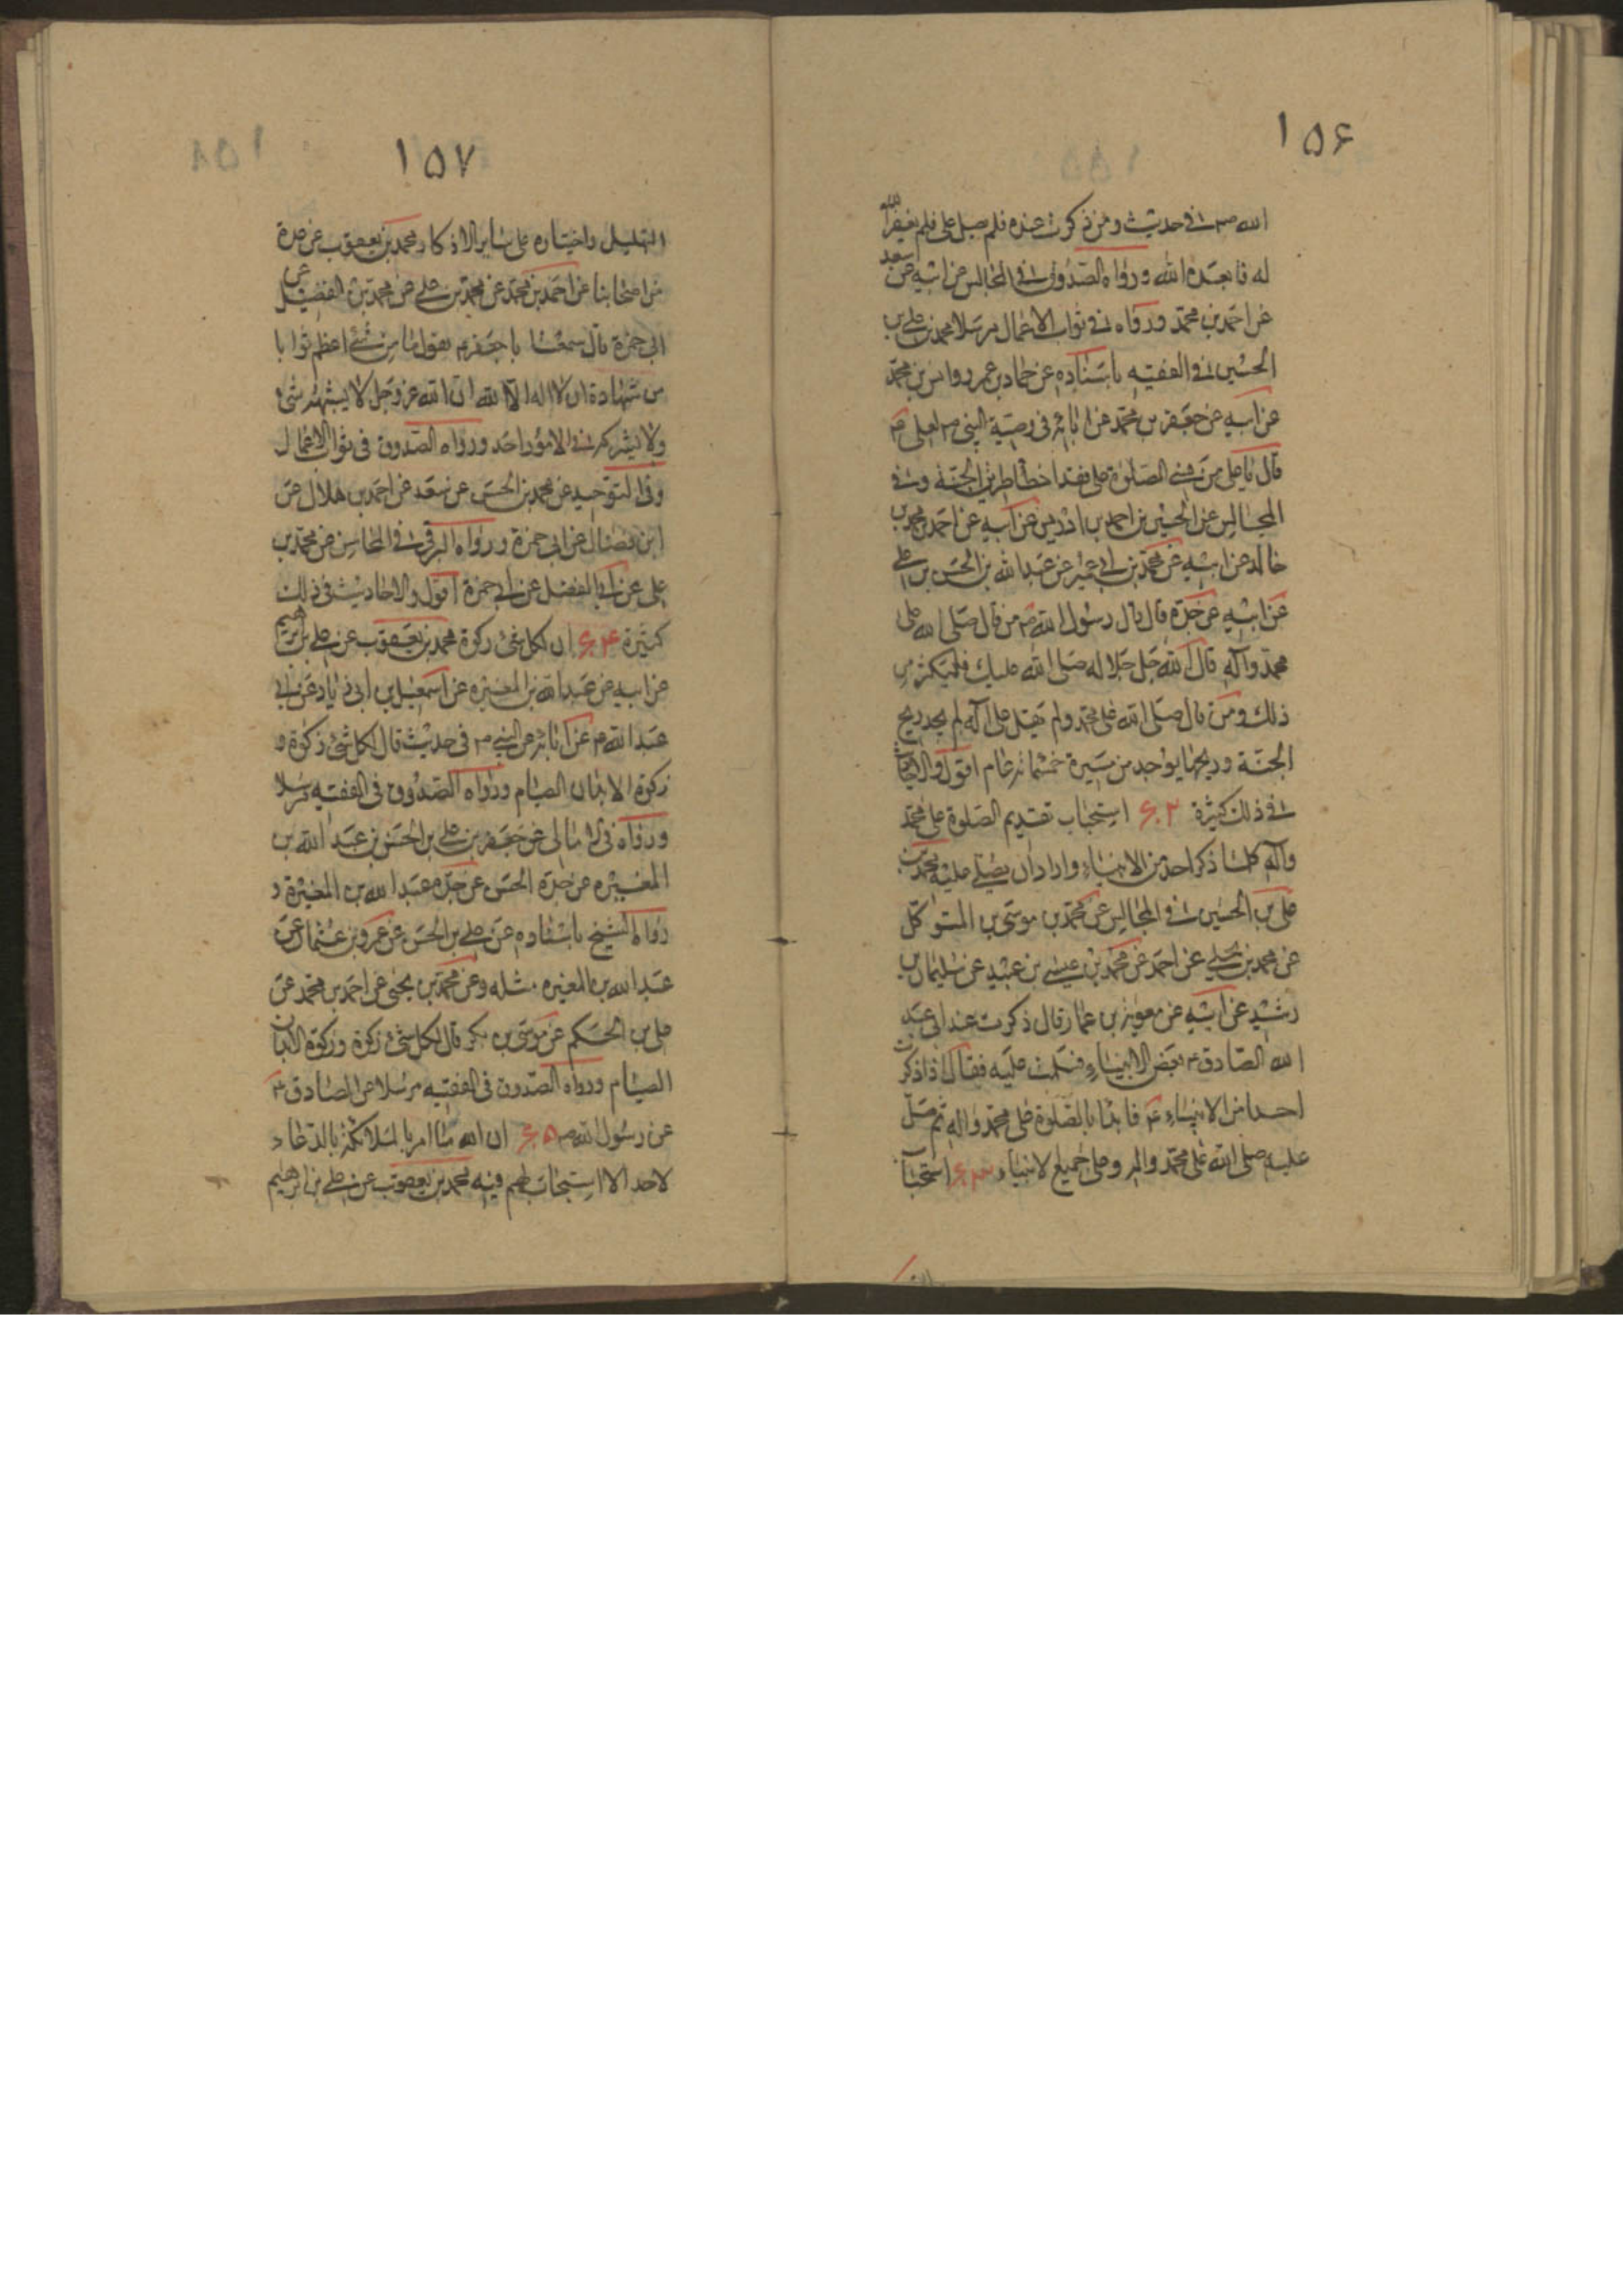 ١٥۶
الله ص في حديث ومن ذكرت عنده فلم يصل علي فلم يغفر الله
له فابعده الله ورواه الصدوق في المجالس عن ابيه عن سعد
عن احمد بن محمد ورواه في ثواب الاعمال مرسلا محمد بن علي بن
الحسين في الفقيه باسناده عن حماد بن عمرو وانس بن محمد
عن ابيه عن جعفر بن محمد عن ابائه في وصية النبي ص لعلي ع
قال يا علي من نسي الصلوة علي فقد اخطا طريق الجنة وفي
المجالس عن الحسين بن احمد بن ادريس عن ابيه عن احمد بن محمد بن
خالد عن ابيه عن محمد بن ابي عمير عن عبد الله بن الحسن بن علي
عن ابيه عن جده قال قال رسول الله ص من قال صلى الله على
محمد وآله قال الله جل جلاله صلى الله عليك فليكثر من
ذلك ومن قال صلى الله على محمد ولم يقل على آله لم يجد ريح
الجنة وريحها يوجد من مسيرة خمسمائة عام اقول والاحاديث
في ذلك كثيرة ۶۰۲ استحباب تقديم الصلوة على محمد
وآله كلما ذكر احد من الانبياء واراد ان يصلي عليه محمد بن
علي بن الحسين في المجالس عن محمد بن موسى بن المتوكل
عن محمد بن يحيى عن احمد عن محمد بن عيسى بن عبيد عن سليمان بن
رشيد عن ابيه عن معوية بن عمار قال ذكرت عند ابي عبد
الله الصادق ع بعض الانبياء فصليت عليه فقال اذا ذكرت
احد من الانبياء ع فابدا بالصلوة على محمد واله ثم صل
عليه صلى الله على محمد واله وعلى جميع الانبياء ۶۰۳ استحباب
١٥٧
التهليل واختياره على ساير الاذكار محمد بن يعقوب عن عدة
من اصحابنا عن احمد بن محمد عن محمد بن علي عن محمد بن الفضيل عن
ابي حمزة قال سمعت ابا جعفر ع يقول ما من شئ اعظم ثوابا
من شهادة ان لا اله الا الله ان الله عز وجل لا يشبهه شئ
ولا يشركه في الامور احد ورواه الصدوق في ثواب الاعمال
وفي التوحيد عن محمد بن الحسن عن سعد عن احمد بن هلال عن
ابن فضال عن ابي حمزة ورواه البرقي في المحاسن عن محمد بن
علي عن ابي الفضل عن ابي حمزة اقول والاحاديث في ذلك
كثيرة ۶۰۴ ان لكل شئ زكوة محمد بن يعقوب عن علي بن ابرهيم
عن ابيه عن عبد الله بن المغيره عن اسمعيل بن ابي زياد عن ابي
عبد الله ع عن ابائه عن النبي ص في حديث قال لكل شئ زكوة و
زكوة الابدان الصيام ورواه الصدوق في الفقيه مرسلا
ورواه في الامالي عن جعفر بن علي بن الحسن بن عبد الله بن
المغيره عن جده الحسن عن جده عبد الله بن المغيرة و
رواه الشيخ باسناده عن علي بن الحسن عن عمرو بن عثمان عن
عبد الله بن المغيره مثله وعن محمد بن يحيى عن احمد بن محمد عن
علي بن الحكم عن موسى بن بكر قال لكل شئ زكوة وزكوة الابدان
الصيام ورواه الصدوق في الفقيه مرسلا عن الصادق ع
عن رسول الله ص ۶۰۵ ان الله ما امر بالملائكة بالدعاء
لاحد الا استجاب لهم فيه محمد بن يعقوب عن علي بن ابرهيم